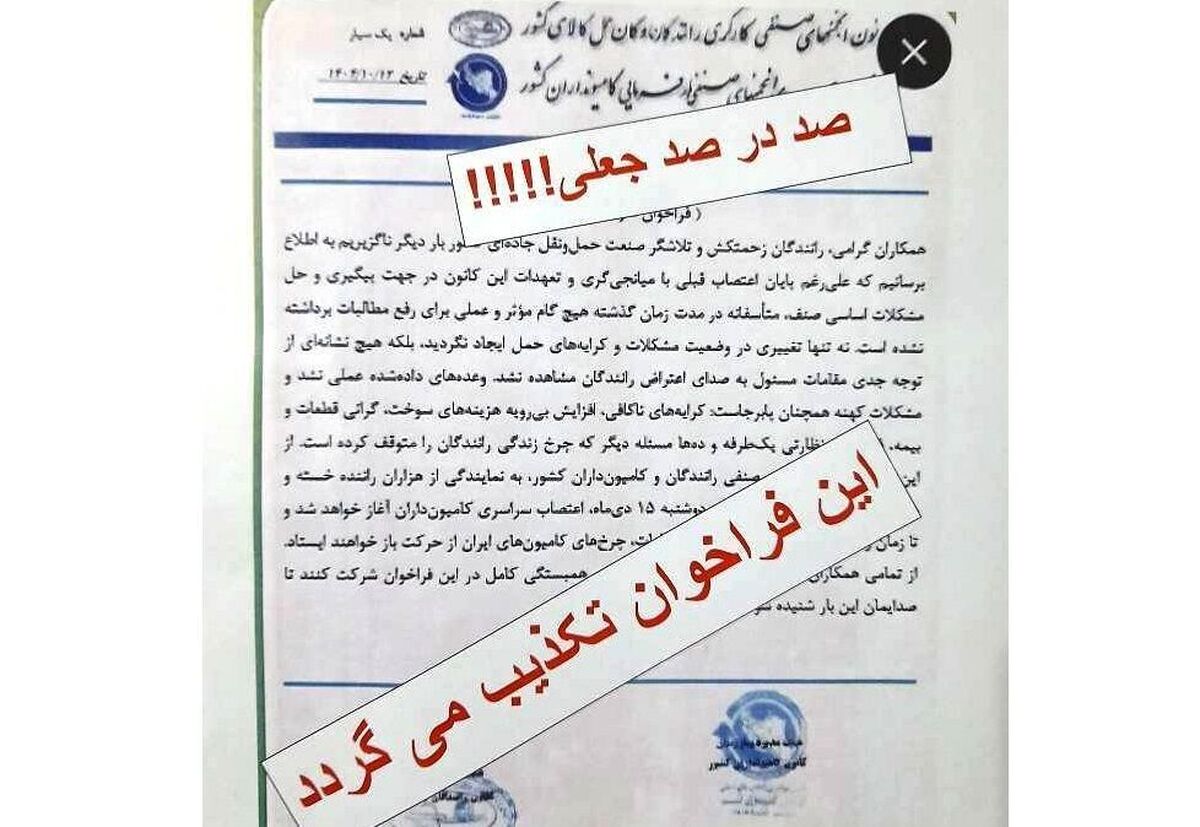 انجمنهای صنفی کارگری رانندگان وکان حمل کالای کشور
شماره یک سیار
انجمنهای صنفی کارفرمایی کامیونداران کشور
تاریخ ۱۴۰۴/۱۰/۱۳
صد در صد جعلی!!!!!
( فراخوان
همکاران گرامی، رانندگان زحمتکش و تلاشگر صنعت حمل‌ونقل جاده‌ای بار دیگر ناگزیریم به اطلاع
برسانیم که علی‌رغم پایان اعتصاب قبلی با میانجی‌گری و تعهدات این کانون در جهت پیگیری و حل
مشکلات اساسی صنف، متأسفانه در مدت زمان گذشته هیچ گام مؤثر و عملی برای رفع مطالبات برداشته
نشده است. نه تنها تغییری در وضعیت مشکلات و کرایه‌های حمل ایجاد نگردید، بلکه هیچ نشانه‌ای از
توجه جدی مقامات مسئول به صدای اعتراض رانندگان مشاهده نشد. وعده‌های داده‌شده عملی نشد و
مشکلات کهنه همچنان پابرجاست: کرایه‌های ناکافی، افزایش بی‌رویه هزینه‌های سوخت، گرانی قطعات و
بیمه، نظارتی یک‌طرفه و ده‌ها مسئله دیگر که چرخ زندگی رانندگان را متوقف کرده است. از
این صنفی رانندگان و کامیون‌داران کشور، به نمایندگی از هزاران راننده خسته و
دوشنبه ۱۵ دی‌ماه، اعتصاب سراسری کامیون‌داران آغاز خواهد شد و
تا زمان چرخ‌های کامیون‌های ایران از حرکت باز خواهند ایستاد.
از تمامی همکاران همبستگی کامل در این فراخوان شرکت کنند تا
صدایمان این بار شنیده
این فراخوان تکذیب می گردد
کانون کامیونداران کشور